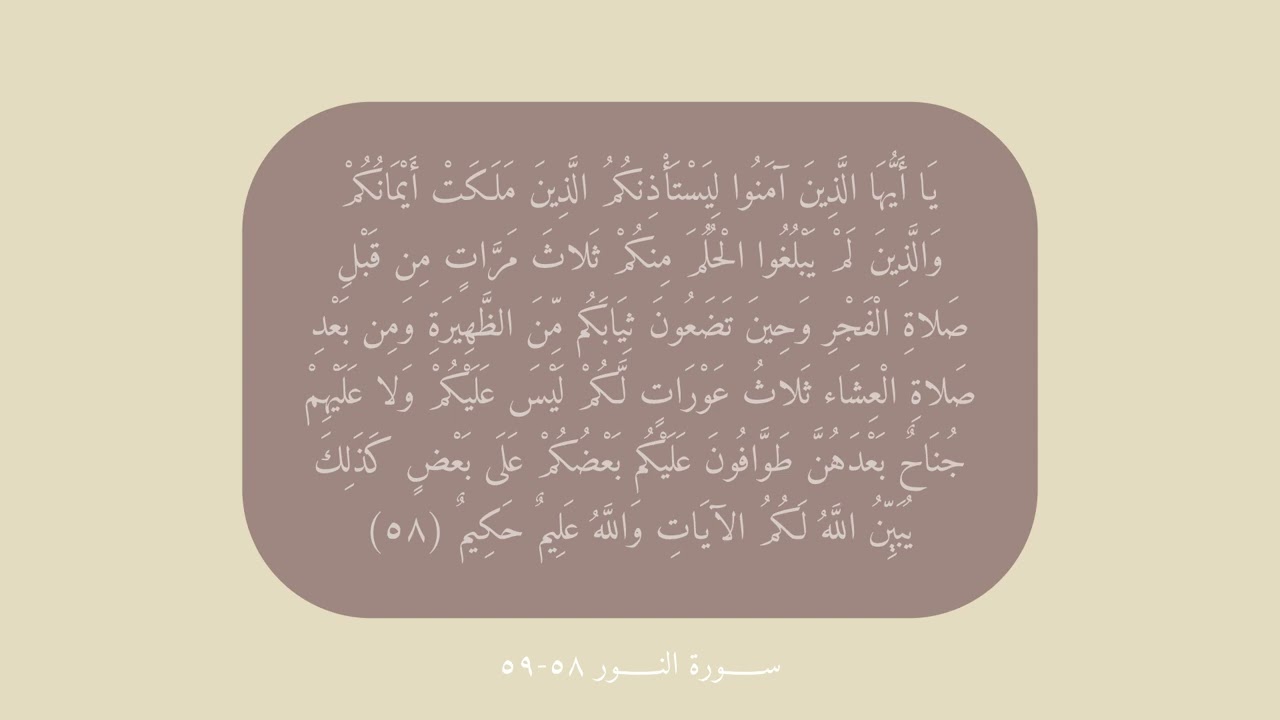 يَا أَيُّهَا الَّذِينَ آمَنُوا لِيَسْتَأْذِنكُمُ الَّذِينَ مَلَكَتْ أَيْمَانُكُمْ
وَالَّذِينَ لَمْ يَبْلُغُوا الْحُلُمَ مِنكُمْ ثَلاثَ مَرَّاتٍ مِن قَبْلِ
صَلاةِ الْفَجْرِ وَحِينَ تَضَعُونَ ثِيَابَكُم مِّنَ الظَّهِيرَةِ وَمِن بَعْدِ
صَلاةِ الْعِشَاء ثَلاثُ عَوْرَاتٍ لَّكُمْ لَيْسَ عَلَيْكُمْ وَلا عَلَيْهِمْ
جُنَاحٌ بَعْدَهُنَّ طَوَّافُونَ عَلَيْكُم بَعْضُكُمْ عَلَى بَعْضٍ كَذَلِكَ
يُبَيِّنُ اللَّهُ لَكُمُ الآيَاتِ وَاللَّهُ عَلِيمٌ حَكِيمٌ (٥٨)
ســـورة النـــور ٥٨-٥٩